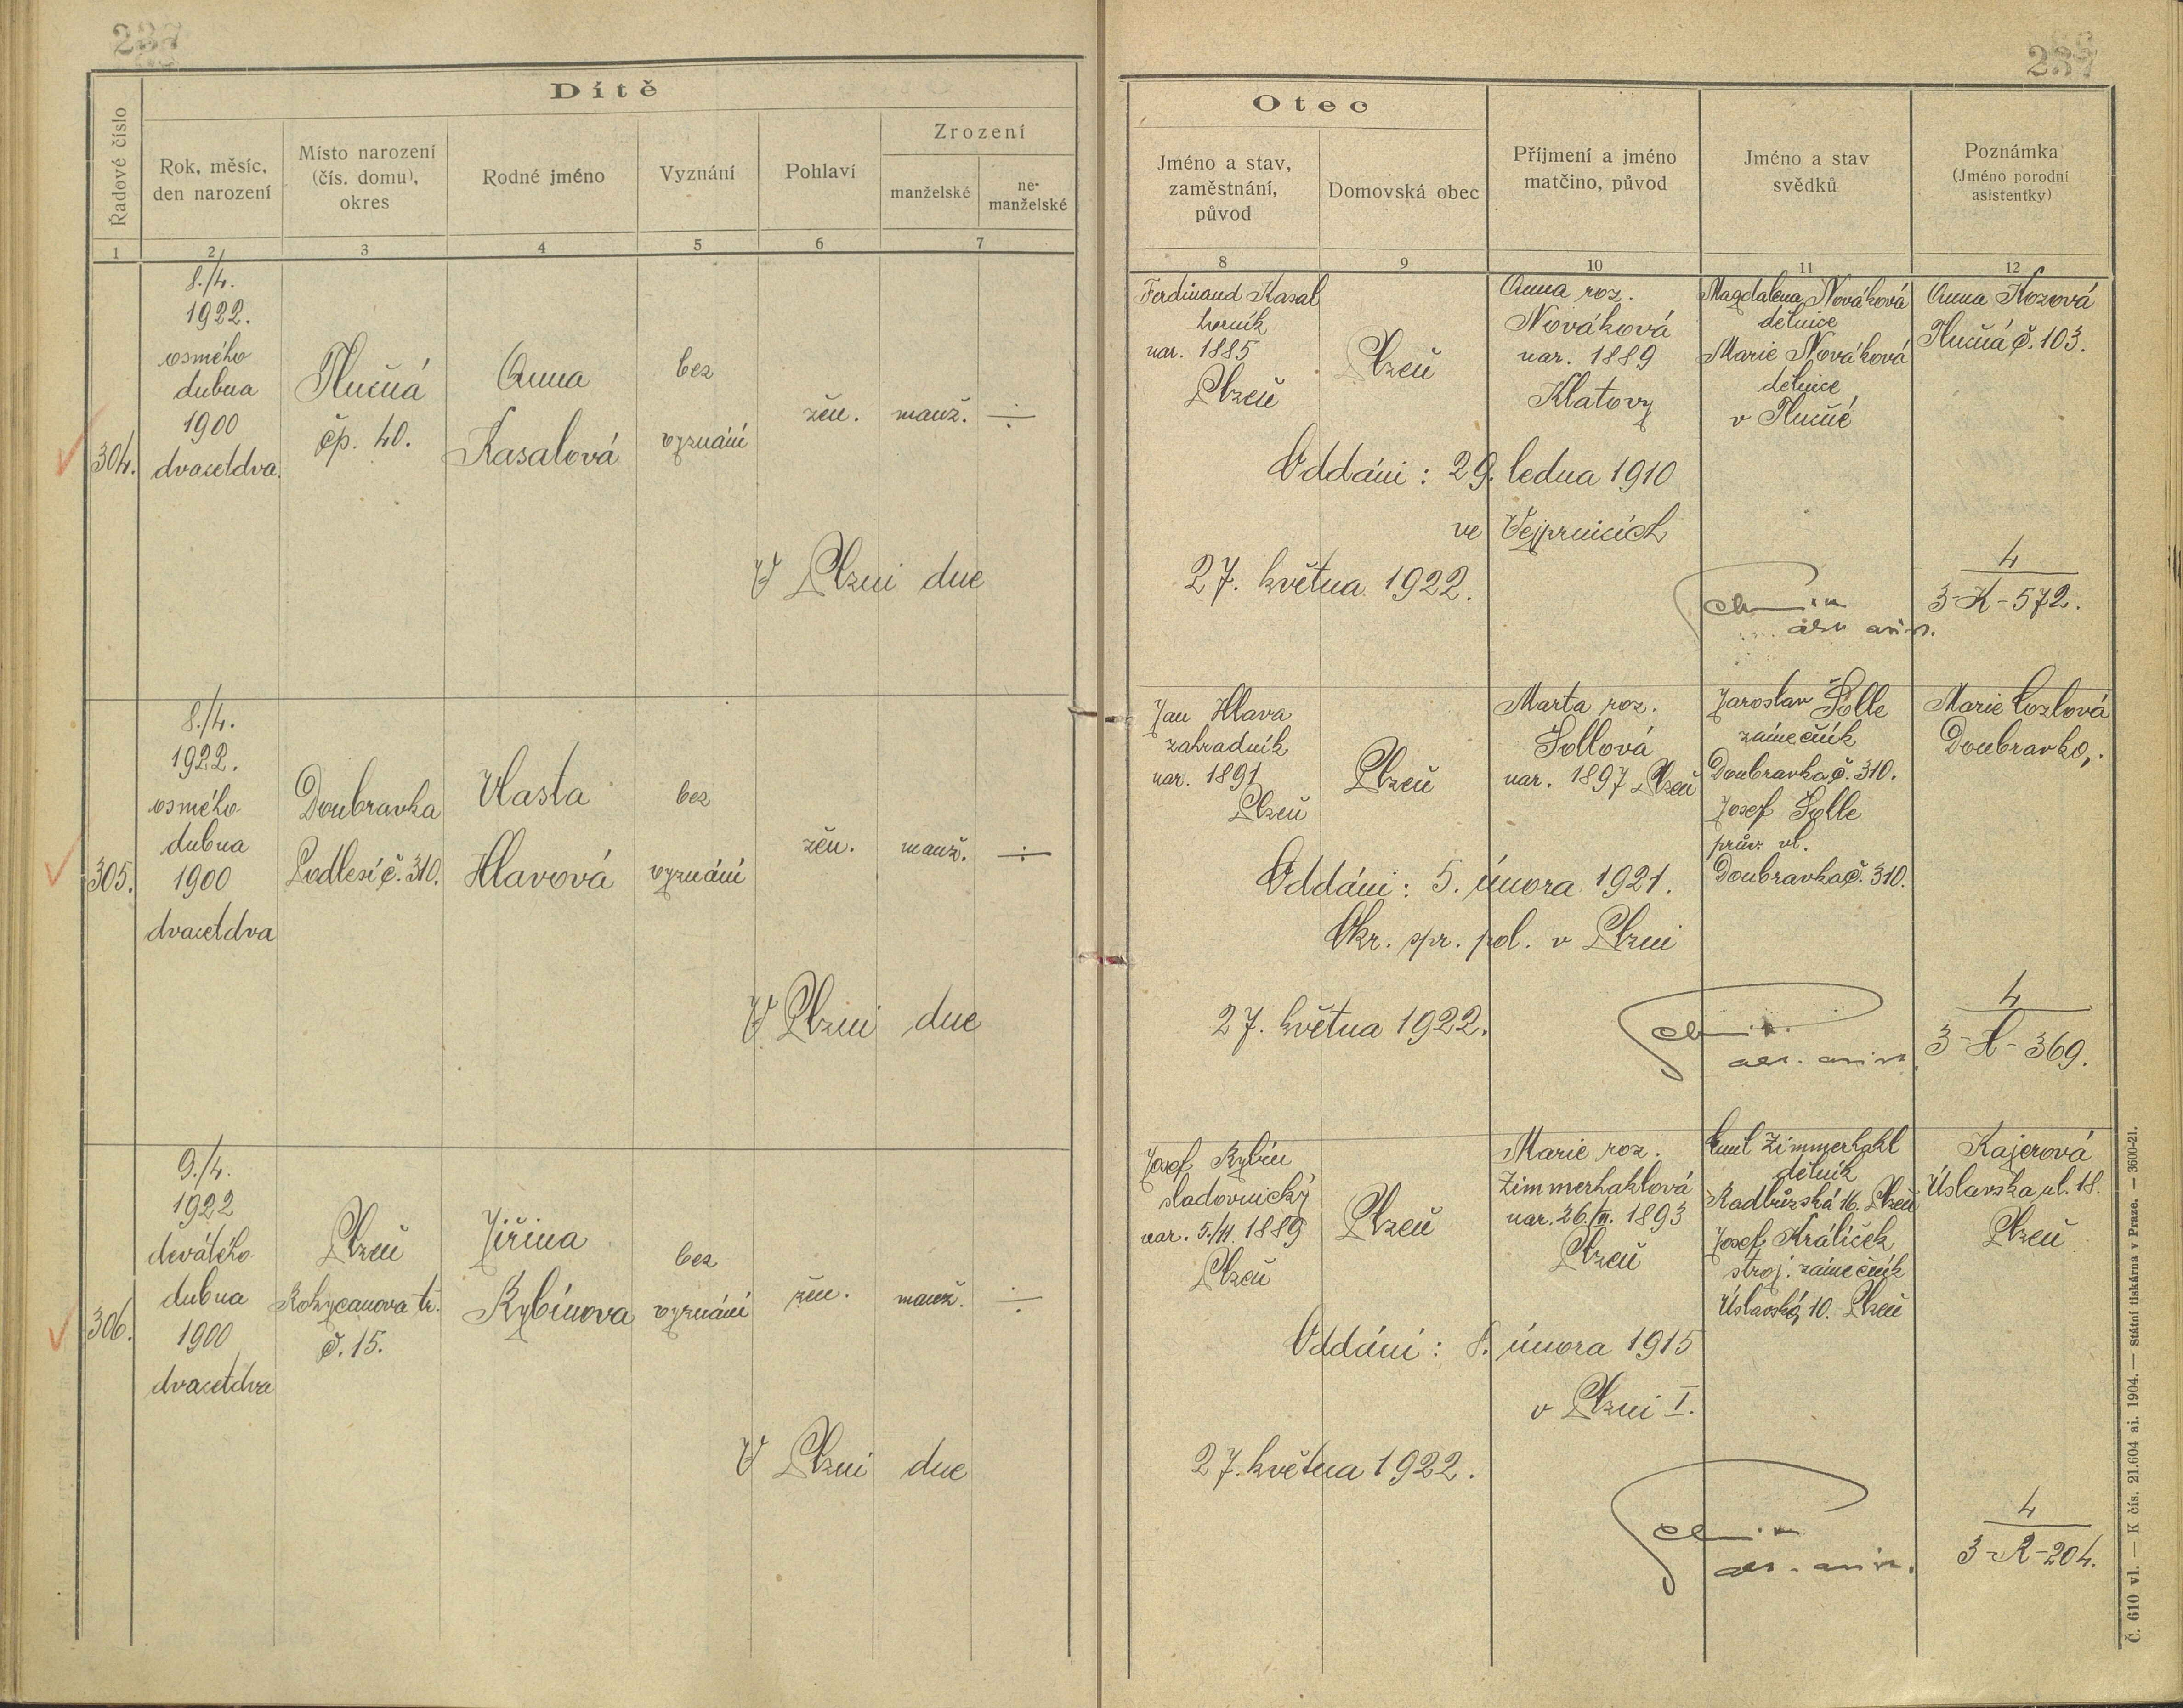 237
237
Dítě
Řadové číslo
Rok, měsíc,
den narození
Místo narození
(čís. domu),
okres
Rodné jméno
Vyznání
Pohlaví
Zrození
manželské
ne-
manželské
1
2
3
4
5
6
7
Otec
Jméno a stav,
zaměstnání,
původ
Domovská obec
Příjmení a jméno
matčino, původ
Jméno a stav
svědků
Poznámka
(Jméno porodní
asistentky)
8
9
10
11
12
304.
8./4.
1922.
osmého
dubna
1900
dvacetdva.
Tlučná
čp. 40.
Anna
Kasalová
bez
vyznání
žen.
manž.
÷
Ferdinand Kasal
horník
nar. 1885
Plzeň
Plzeň
Anna roz.
Nováková
nar. 1889
Klatovy
Magdalena Nováková
dělnice
Marie Nováková
dělnice
v Tlučné
Anna Kozová
Tlučná č. 103.
Oddáni : 29. ledna 1910
ve Vejprnicích
V Plzni dne
27. května 1922.
4
3-K-572.
305.
8./4.
1922.
osmého
dubna
1900
dvacetdva
Doubravka
Podlesí č. 310.
Vlasta
Hlavová
bez
vyznání
žen.
manž.
÷
Jan Hlava
zahradník
nar. 1891
Plzeň
Plzeň
Marta roz.
Šollová
nar. 1897 Plzeň
Jaroslav Šolle
zámečník
Doubravka č. 310.
Josef Šolle
vl.
Doubravka č. 310.
Marie
Doubravka,
Oddáni : 5. února 1921.
Okr. spr. pol. v Plzni
V Plzni dne
27. května 1922.
4
3-H-369.
306.
9./4.
1922
devátého
dubna
1900
dvacetdva
Plzeň
Rokycanova tř.
č. 15.
Jiřina
Rybínova
bez
vyznání
žen.
manž.
÷
Josef Rybín
sladovnický
nar. 1889
Plzeň
Plzeň
Marie roz.
Zimmerhaklová
nar. 26. 1893
Plzeň
Emil Zimmerhakl
dělník
Radbůzská 16. Plzeň
Josef Králíček
stroj. zámečník
Úslavská 10. Plzeň
Kajerová
Úslavska ul. 18.
Plzeň
Oddáni : 8. února 1915
v Plzni I.
V Plzni dne
27. května 1922.
4
3-R-204.
Č. 610 vl. — K čís. 21.604 ai. 1904. — Státní tiskárna v Praze. — 3600-21.